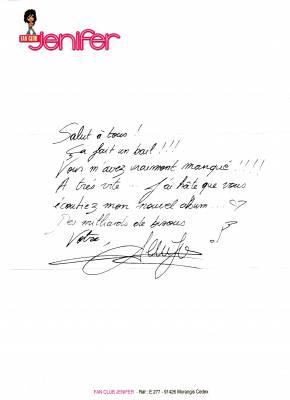 FAN CLUB
Jenifer
Salut à tous !
Ça fait un bail !!!
Vous m'avez vraiment manqué !!!!
A très vite ... J'ai hâte que vous
écoutiez mon nouvel album ...
Des milliards de bisous
Votre,
Jenifer
FAN CLUB JENIFER - Réf : E 277 - 91426 Morangis Cedex